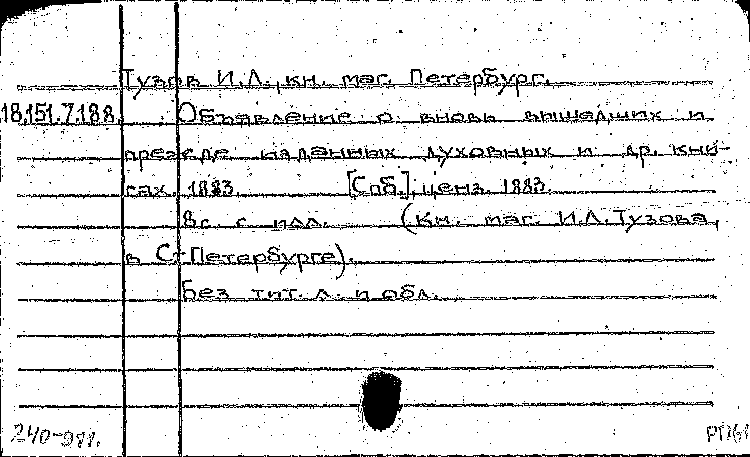 Тузов И.Л., кн. маг. Петербург.
18.151.7.188. Объявление о вновь вышедших и
прежде изданных духовных и др. кни-
гах. 1883. [Спб.], ценз. 1883.
8с. с илл. (Кн. маг. И.Л.Тузова,
в С-Петербурге).
Без тит. л. и обл.
240-981.